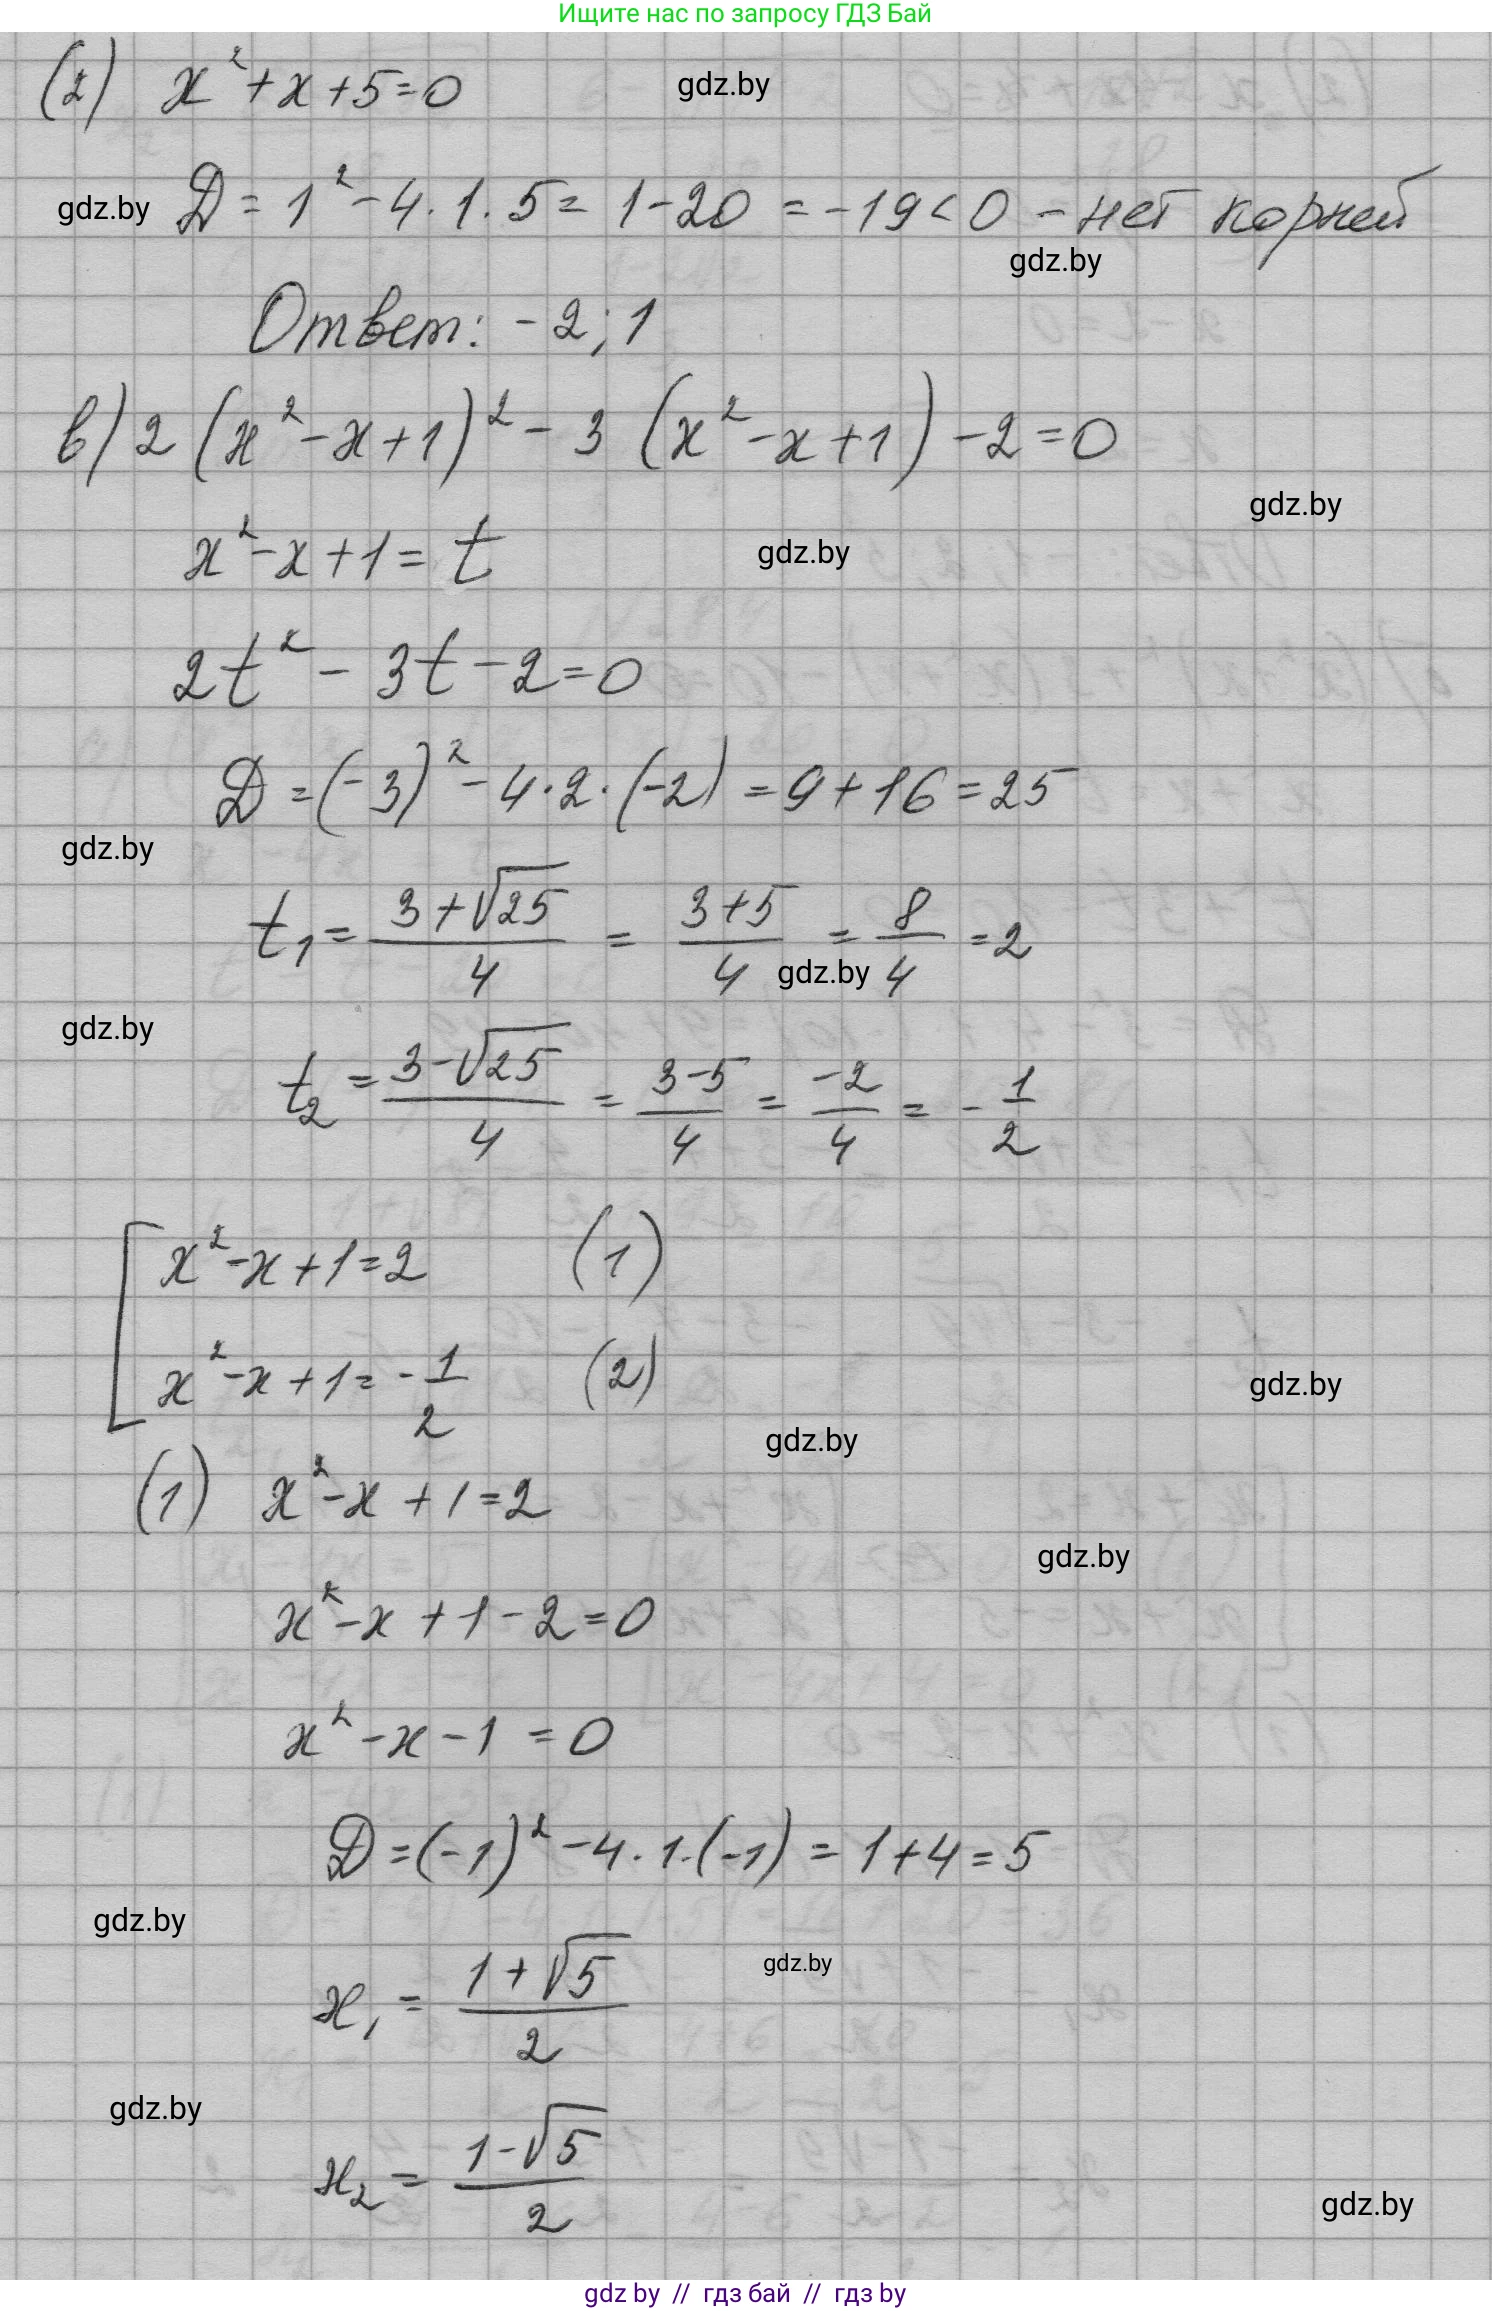 Ищите нас по запросу ГДЗ Бай
(2) x² + x + 5 = 0
gdz.by
gdz.by
D = 1² - 4 · 1 · 5 = 1 - 20 = -19 < 0 - нет корней
gdz.by
Ответ: -2; 1
в) 2 (x² - x + 1)² - 3 (x² - x + 1) - 2 = 0
gdz.by
x² - x + 1 = t
gdz.by
2t² - 3t - 2 = 0
D = (-3)² - 4 · 2 · (-2) = 9 + 16 = 25
gdz.by
t₁ = (3 + √25)/4 = (3 + 5)/4 = 8/4 = 2
gdz.by
gdz.by
t₂ = (3 - √25)/4 = (3 - 5)/4 = -2/4 = -1/2
[ x² - x + 1 = 2 (1)
x² - x + 1 = -1/2 (2)
gdz.by
gdz.by
(1) x² - x + 1 = 2
gdz.by
x² - x + 1 - 2 = 0
x² - x - 1 = 0
D = (-1)² - 4 · 1 · (-1) = 1 + 4 = 5
gdz.by
gdz.by
x₁ = (1 + √5)/2
gdz.by
x₂ = (1 - √5)/2
gdz.by
gdz by // гдз бай // гдз by